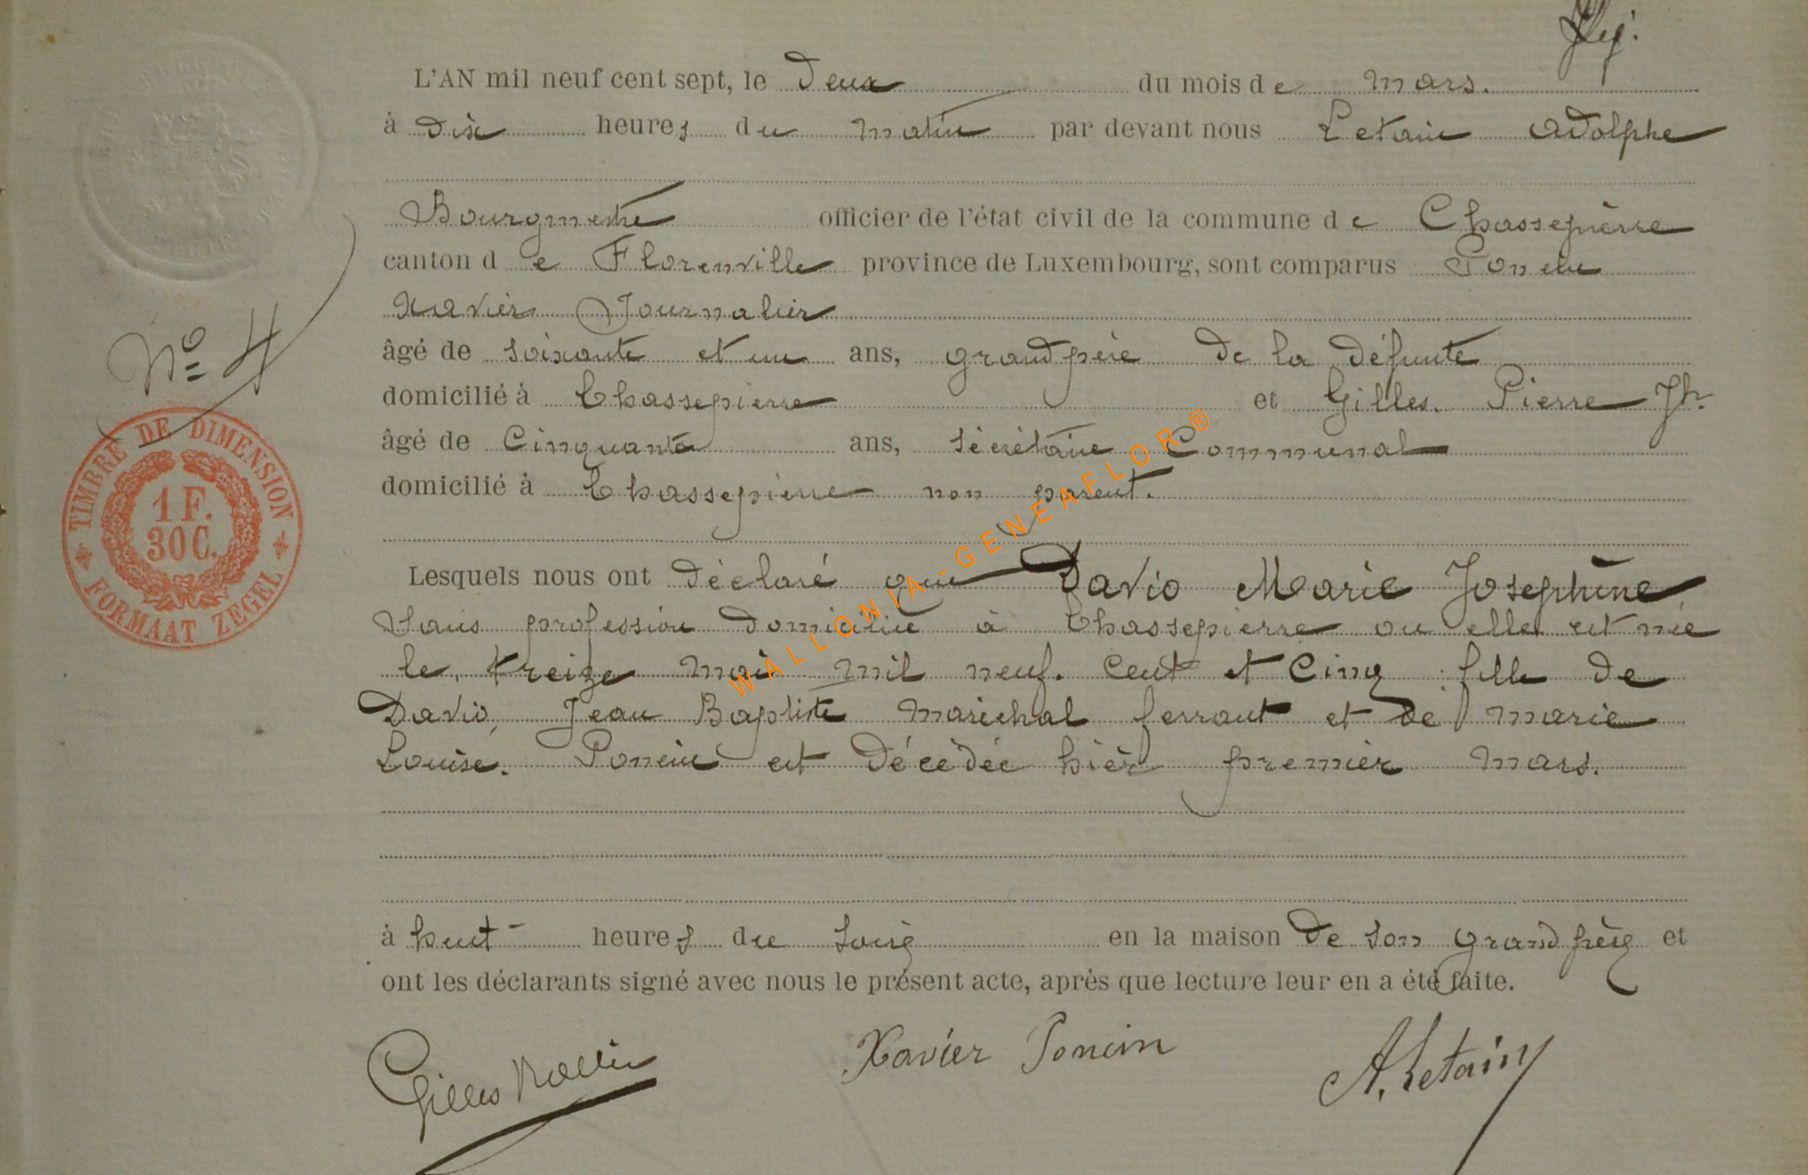 L'AN mil neuf cent sept, le Deux du mois de Mars.
à Dix heures du Matin par devant nous Letain Adolphe
Bourgmestre officier de l'état civil de la commune de Chassepierre
canton de Florenville province de Luxembourg, sont comparus Poncin
Xavier Journalier
âgé de soixante et un ans, grand père de la défunte
domicilié à Chassepierre et Gilles Pierre Jh.
âgé de Cinquante ans, Sécrétaire Communal
domicilié à Chassepierre non parent.
Lesquels nous ont déclaré que David Marie Josephine
Sans profession domiciliée à Chassepierre ou elle est née
le treize mai mil neuf cent et Cinq fille de
David Jean Baptiste Maréchal ferrant et de Marie
Louise Poncin est décédée hier premier mars.
à huit heures du Soir en la maison de son grand père et
ont les déclarants signé avec nous le présent acte, après que lecture leur en a été faite.
Gilles Xavier Poncin A. Letain
No 4
TIMBRE DE DIMENSION
1 F.
30 C.
FORMAAT ZEGEL
WALLONIA-GENEAFLOR®